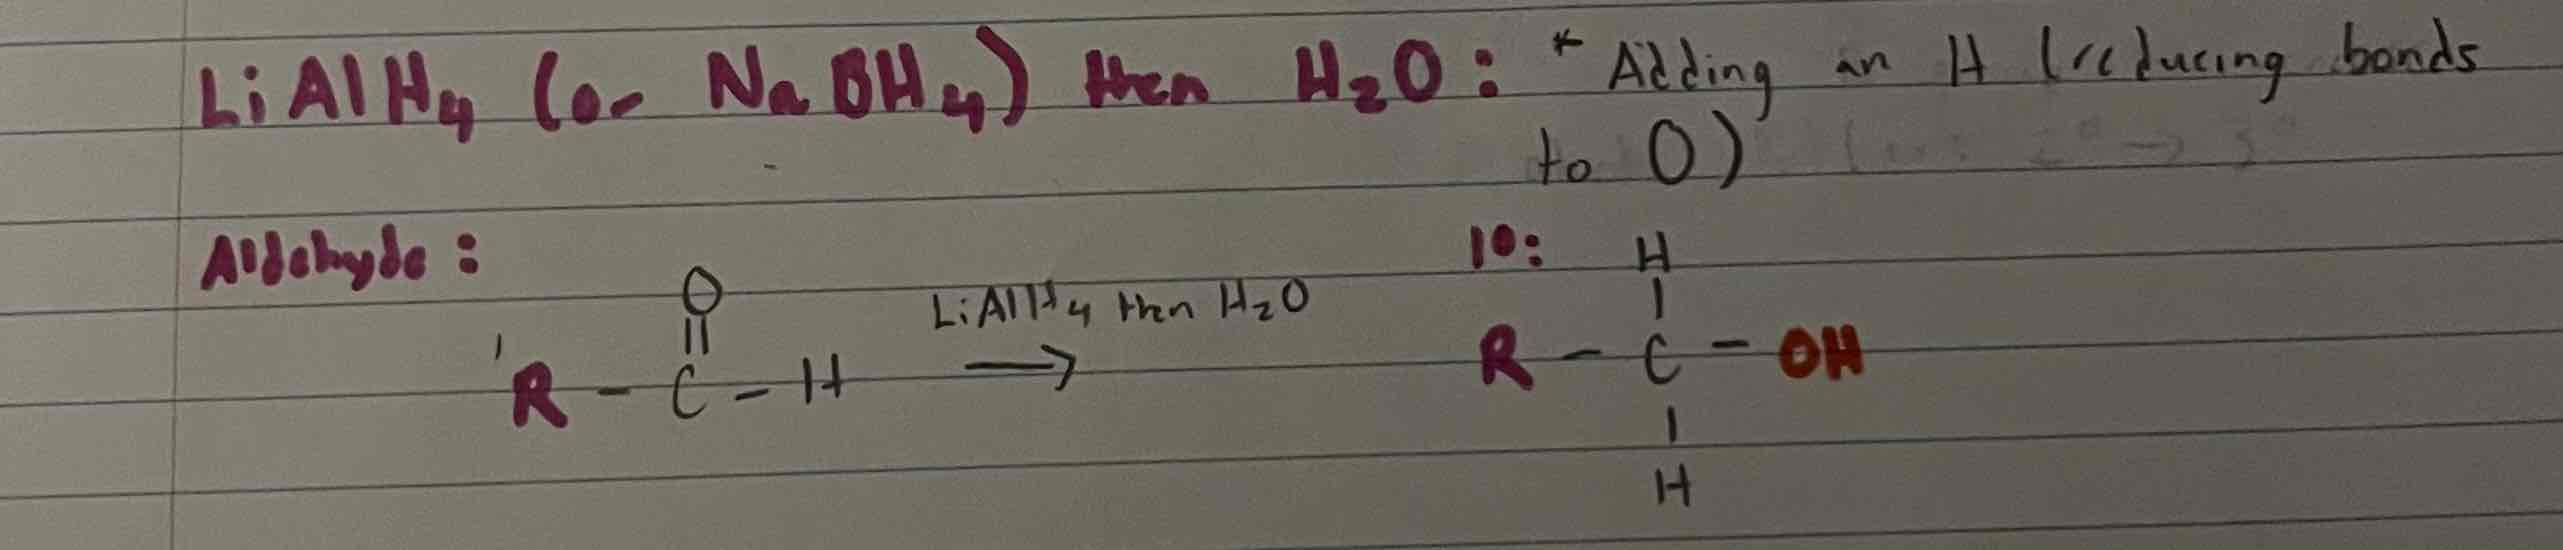 LiAlH4 (or NaBH4) then H2O: * Adding an H (reducing bonds
to O)
Aldehyde:
1°: H
O
LiAlH4 then H2O
R - C - H → R - C - OH
H